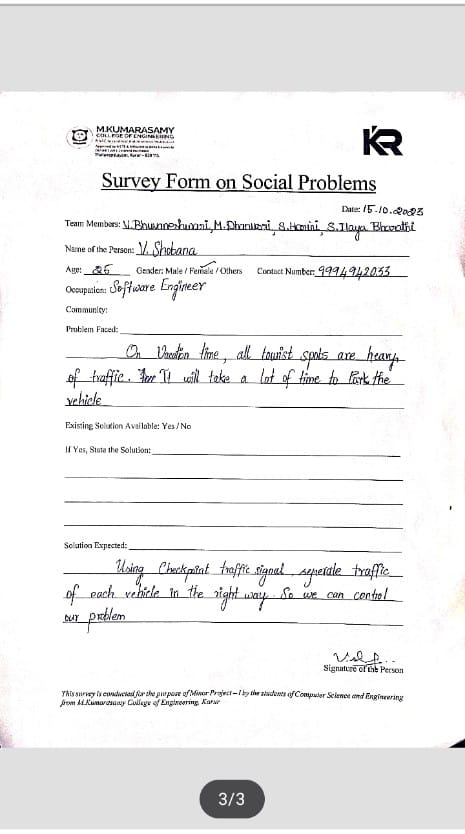 M.KUMARASAMY
COLLEGE OF ENGINEERING
Thalavapalayam, Karur - 639 113.
KR
Survey Form on Social Problems
Date: 15.10.2023
Team Members: V. Bhuvaneshwari, M. Dharuni, S. Hamini, S. Ilaya Bharathi
Name of the Person: V. Shobana
Age: 25 Gender: Male / Female / Others Contact Number: 9994942033
Occupation: Software Engineer
Community:
Problem Faced:
On Vacation time, all tourist spots are heavy
of traffic. It will take a lot of time to Park the
vehicle
Existing Solution Available: Yes / No
If Yes, State the Solution:
Solution Expected:
Using Checkpoint traffic signal, seperate traffic
of each vehicle in the right way. So we can control
our problem
Signature of the Person
This survey is conducted for the purpose of Minor Project – I by the students of Computer Science and Engineering
from M.Kumarasamy College of Engineering, Karur
3/3